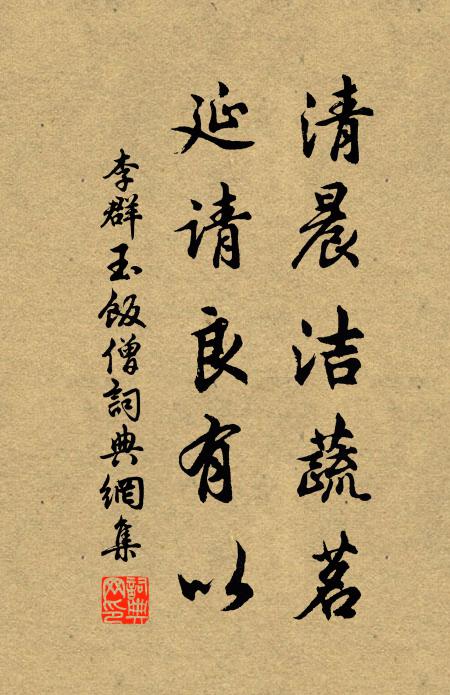 清晨洁蔬茗
延请良有以
李群玉飯僧詞典網集
詞典网印